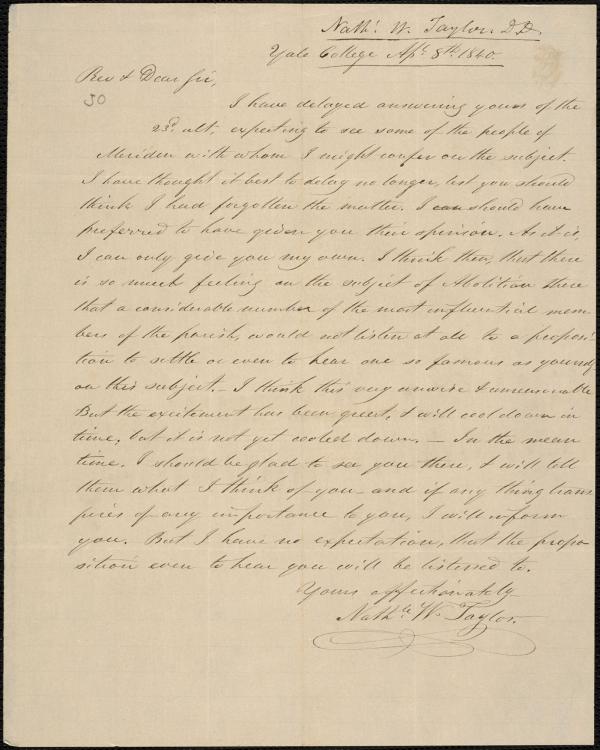 Nathl. W. Taylor. D.D.
Yale College Apl. 8th. 1840.
Rev & Dear Sir,
30
I have delayed answering yours of the
23d. ult, expecting to see some of the people of
Meriden with whom I might confer on the subject.
I have thought it best to delay no longer, lest you should
think I had forgotten the matter. I can should have
preferred to have given you their opinion. As it is,
I can only give you my own. I think then, that there
is so much feeling on the subject of Abolition there
that a considerable number of the most influential mem
bers of the parish, would not listen at all to a proposi-
tion to settle or even to hear one so famous as yourself
on this subject. — I think this very unwise & unreasonable
But the excitement has been great, & will cool down in
time, but it is not yet cooled down. — In the mean
time, I should be glad to see you there, & will tell
them what I think of you — and if any thing trans
pires of any importance to you, I will inform
you. But I have no expectation, that the propo-
sition even to hear you will be listened to.
Yours affectionately
Nathl. W. Taylor.